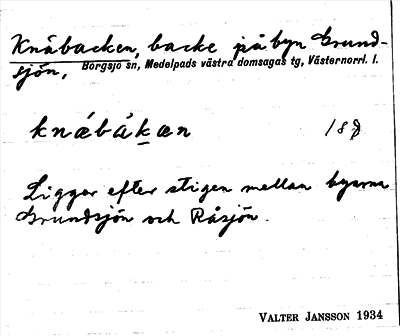 Knäbacken, backe på byn Grund-
sjön, Borgsjö sn, Medelpads västra domsagas tg, Västernorrl. l.
knǽbákæn 18
Ligger efter stigen mellan byarna
Grundsjön och Råsjön.
VALTER JANSSON 1934